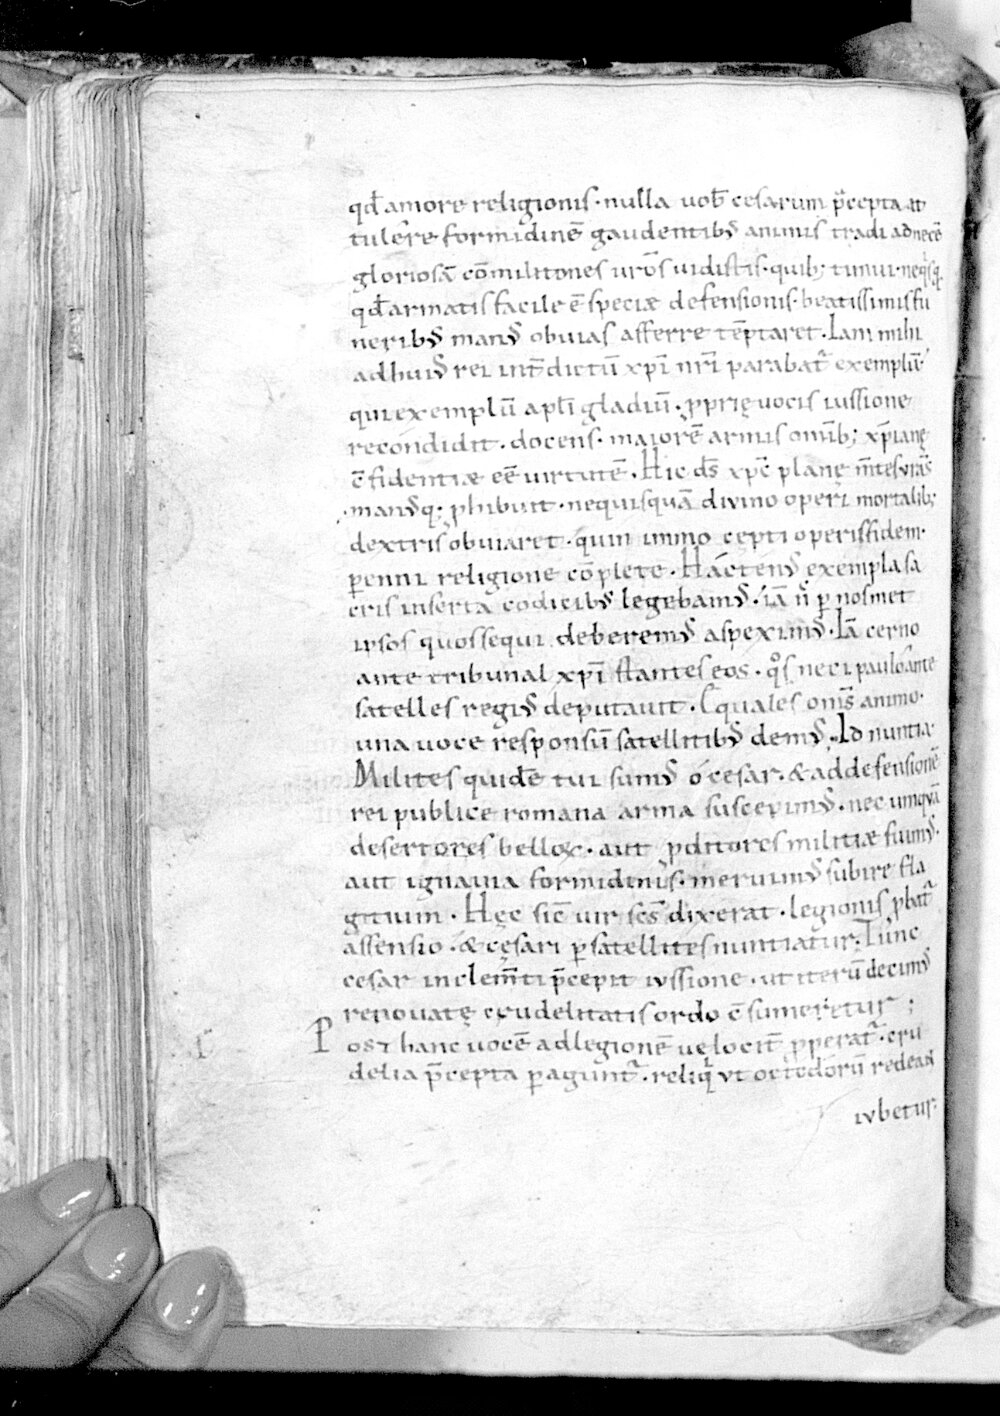 qđ amore religionis · nulla uob̄ cesarum p̄cepta at
tulere formidinē gaudentibꝰ animis tradi ad necē
gloriosā cōmilitones ur̄os uidistis · quib; timui · neq̇sq̇
qđ armatis facile ē speciæ defensionis · beatissimis fu
neribꝰ manꝰ obuias afferre tēptaret · Iam mihi
adhuiꝰ rei int̄dictū xp̄i nr̄i parabat᷑ exemplū
qui exemplū apl̄i gladiū · ꝓprię uocis iussione
recondidit · docens · maiorē armis omīb; xp̄ianę
c̄fidentiæ eē uirtutē · Hic dś xp̄c plane m̄tes ur̄as
manꝰq; ꝓhibuit · ne quisquā diuino operi mortalib;
dextris obuiaret · quin immo cepti operis fidem ·
ꝑenni religione cōplete · Hactenꝰ exempla sa
cris inserta codicibꝰ legebamꝰ · iā ṅ ꝑ nosmet
ipsos quos sequi deberemꝰ aspeximꝰ · Iā cerno
ante tribunal xp̄i stantes eos · q̊s neci paulo ante
satelles regiꝰ deputauit · Ęquales om̄s animo ·
una uoce responsū satellitibꝰ demꝰ · Id nuntia ·
Milites quidē tui sumꝰ o cesar · & ad defensionē
rei publice romana arma suscepimꝰ · nec umquā
desertores belloꝝ · aut ꝓditores militiæ fuimꝰ ·
aut ignauia formidinis · meruimꝰ subire fla
gitium · Hęc sic̄ uir sc̄s dixerat · legionis ꝓbat᷑
assensio · & cęsari ꝑ satellites nuntiatur · Tunc
cesar inclem̄ti p̄cepit iussione · ut iterū decimꝰ
renouatę crudelitatis ordo c̄sumeretur ;
Post hanc uocē ad legionē uelocit̄ ꝓperat᷑ · cru
delia p̄cepta ꝑagunt᷑ · reliq̇ ut octodorū redeant
iubetur ·